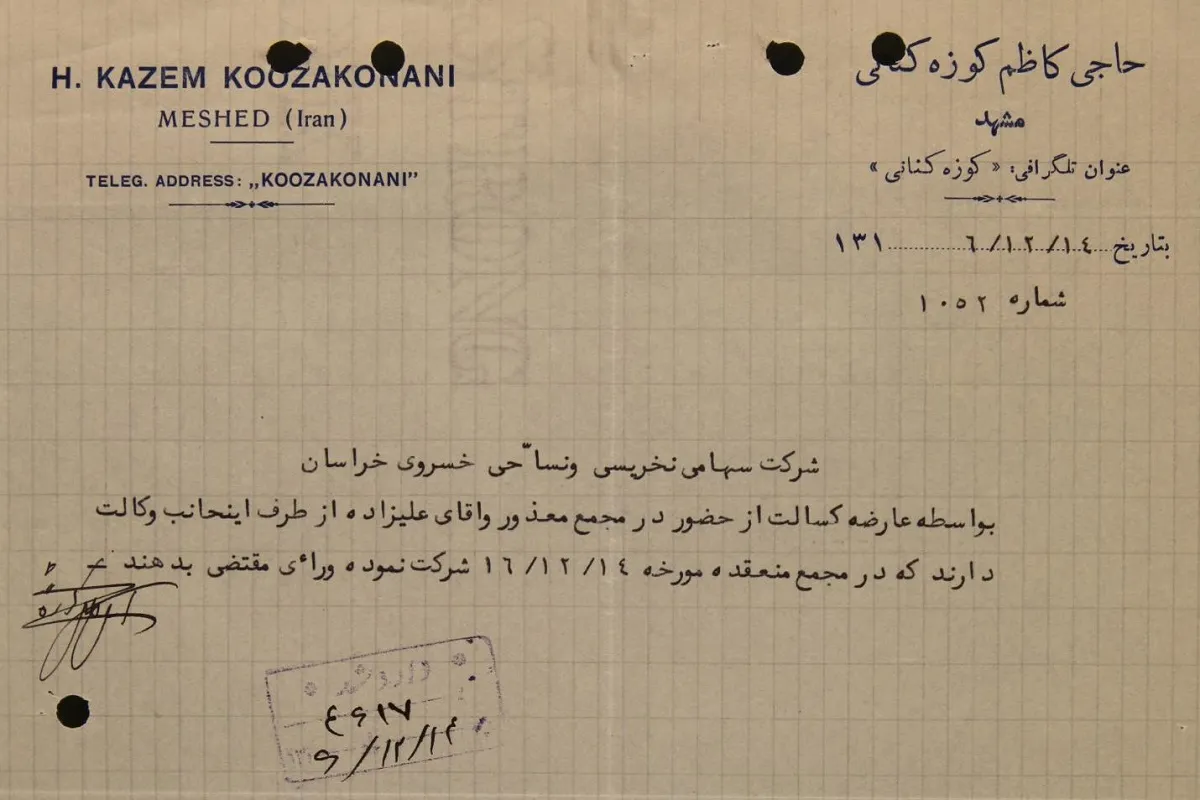 H. KAZEM KOOZAKONANI
MESHED (Iran)
TELEG. ADDRESS: „KOOZAKONANI”
حاجی کاظم کوزه کنانی
مشهد
عنوان تلگرافی: «کوزه کنانی»
بتاریخ ١٤/ ١٢/ ٦ ١٣١
شماره ١٠٥٢
شرکت سهامی نخریسی ونساّحی خسروی خراسان
بواسطه عارضه کسالت از حضور در مجمع معذور واقای علیزاده از طرف اینحانب وکالت
دارند که در مجمع منعقده مورخه ١٤/ ١٢/ ١٦ شرکت نموده ورأی مقتضی بدهند
وارد شد
٤٦١٧
٦/١٢/١٤